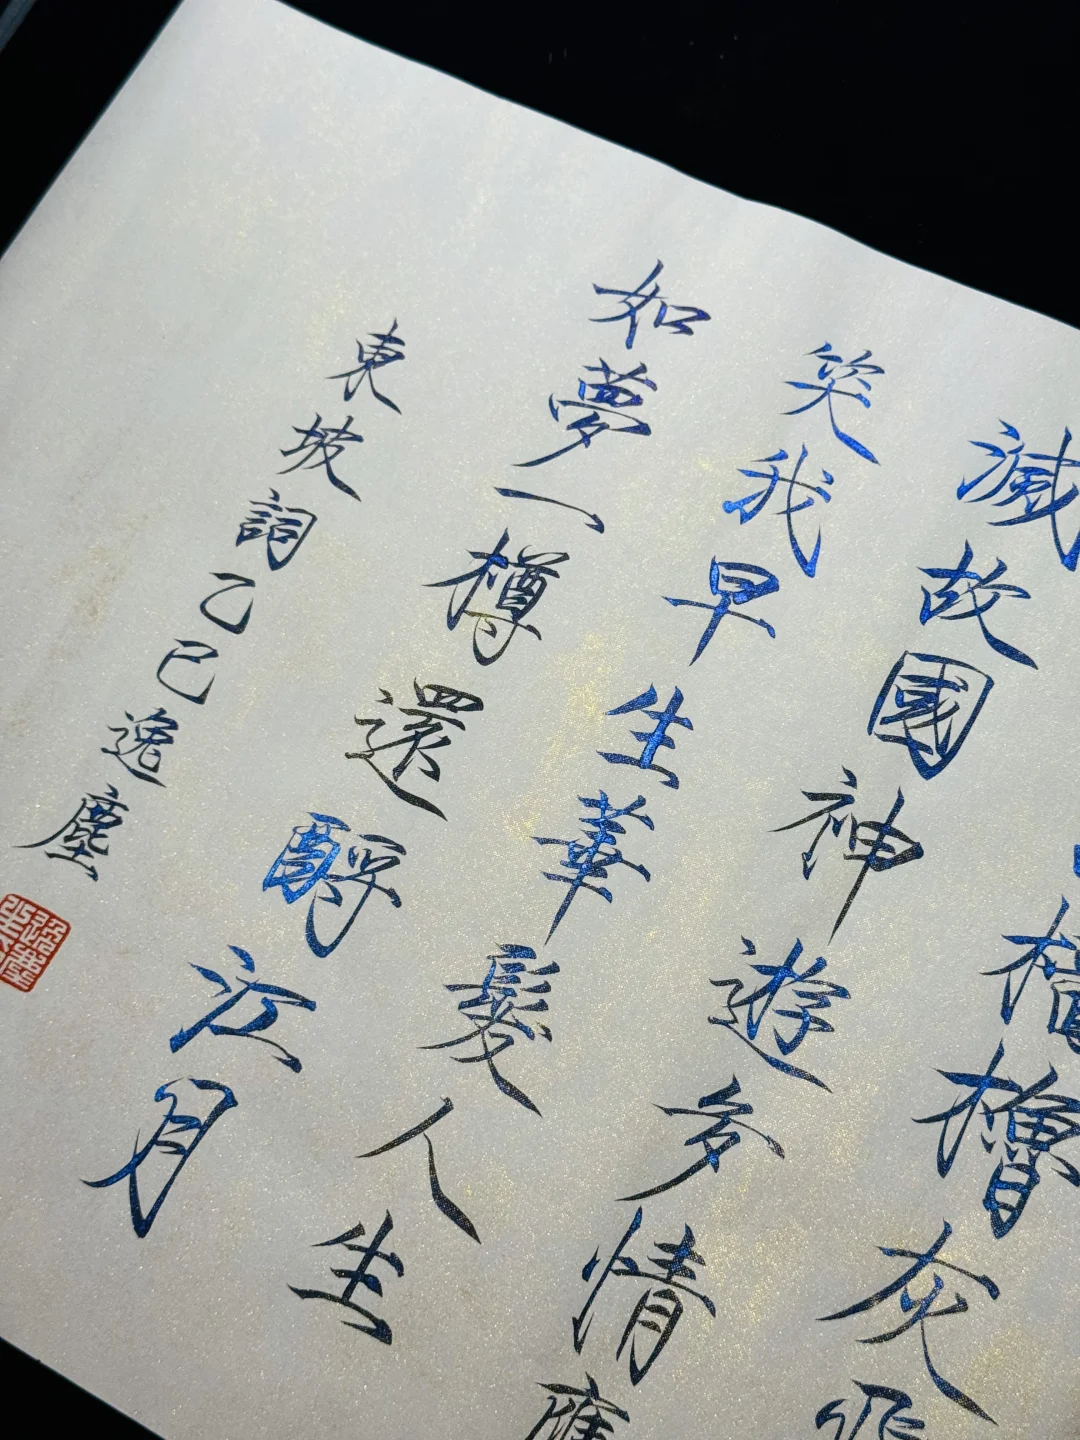 檣櫓灰飛
滅故國神遊多情應
笑我早生華髮人生
如夢一樽還酹江月
東坡詞乙巳逸塵